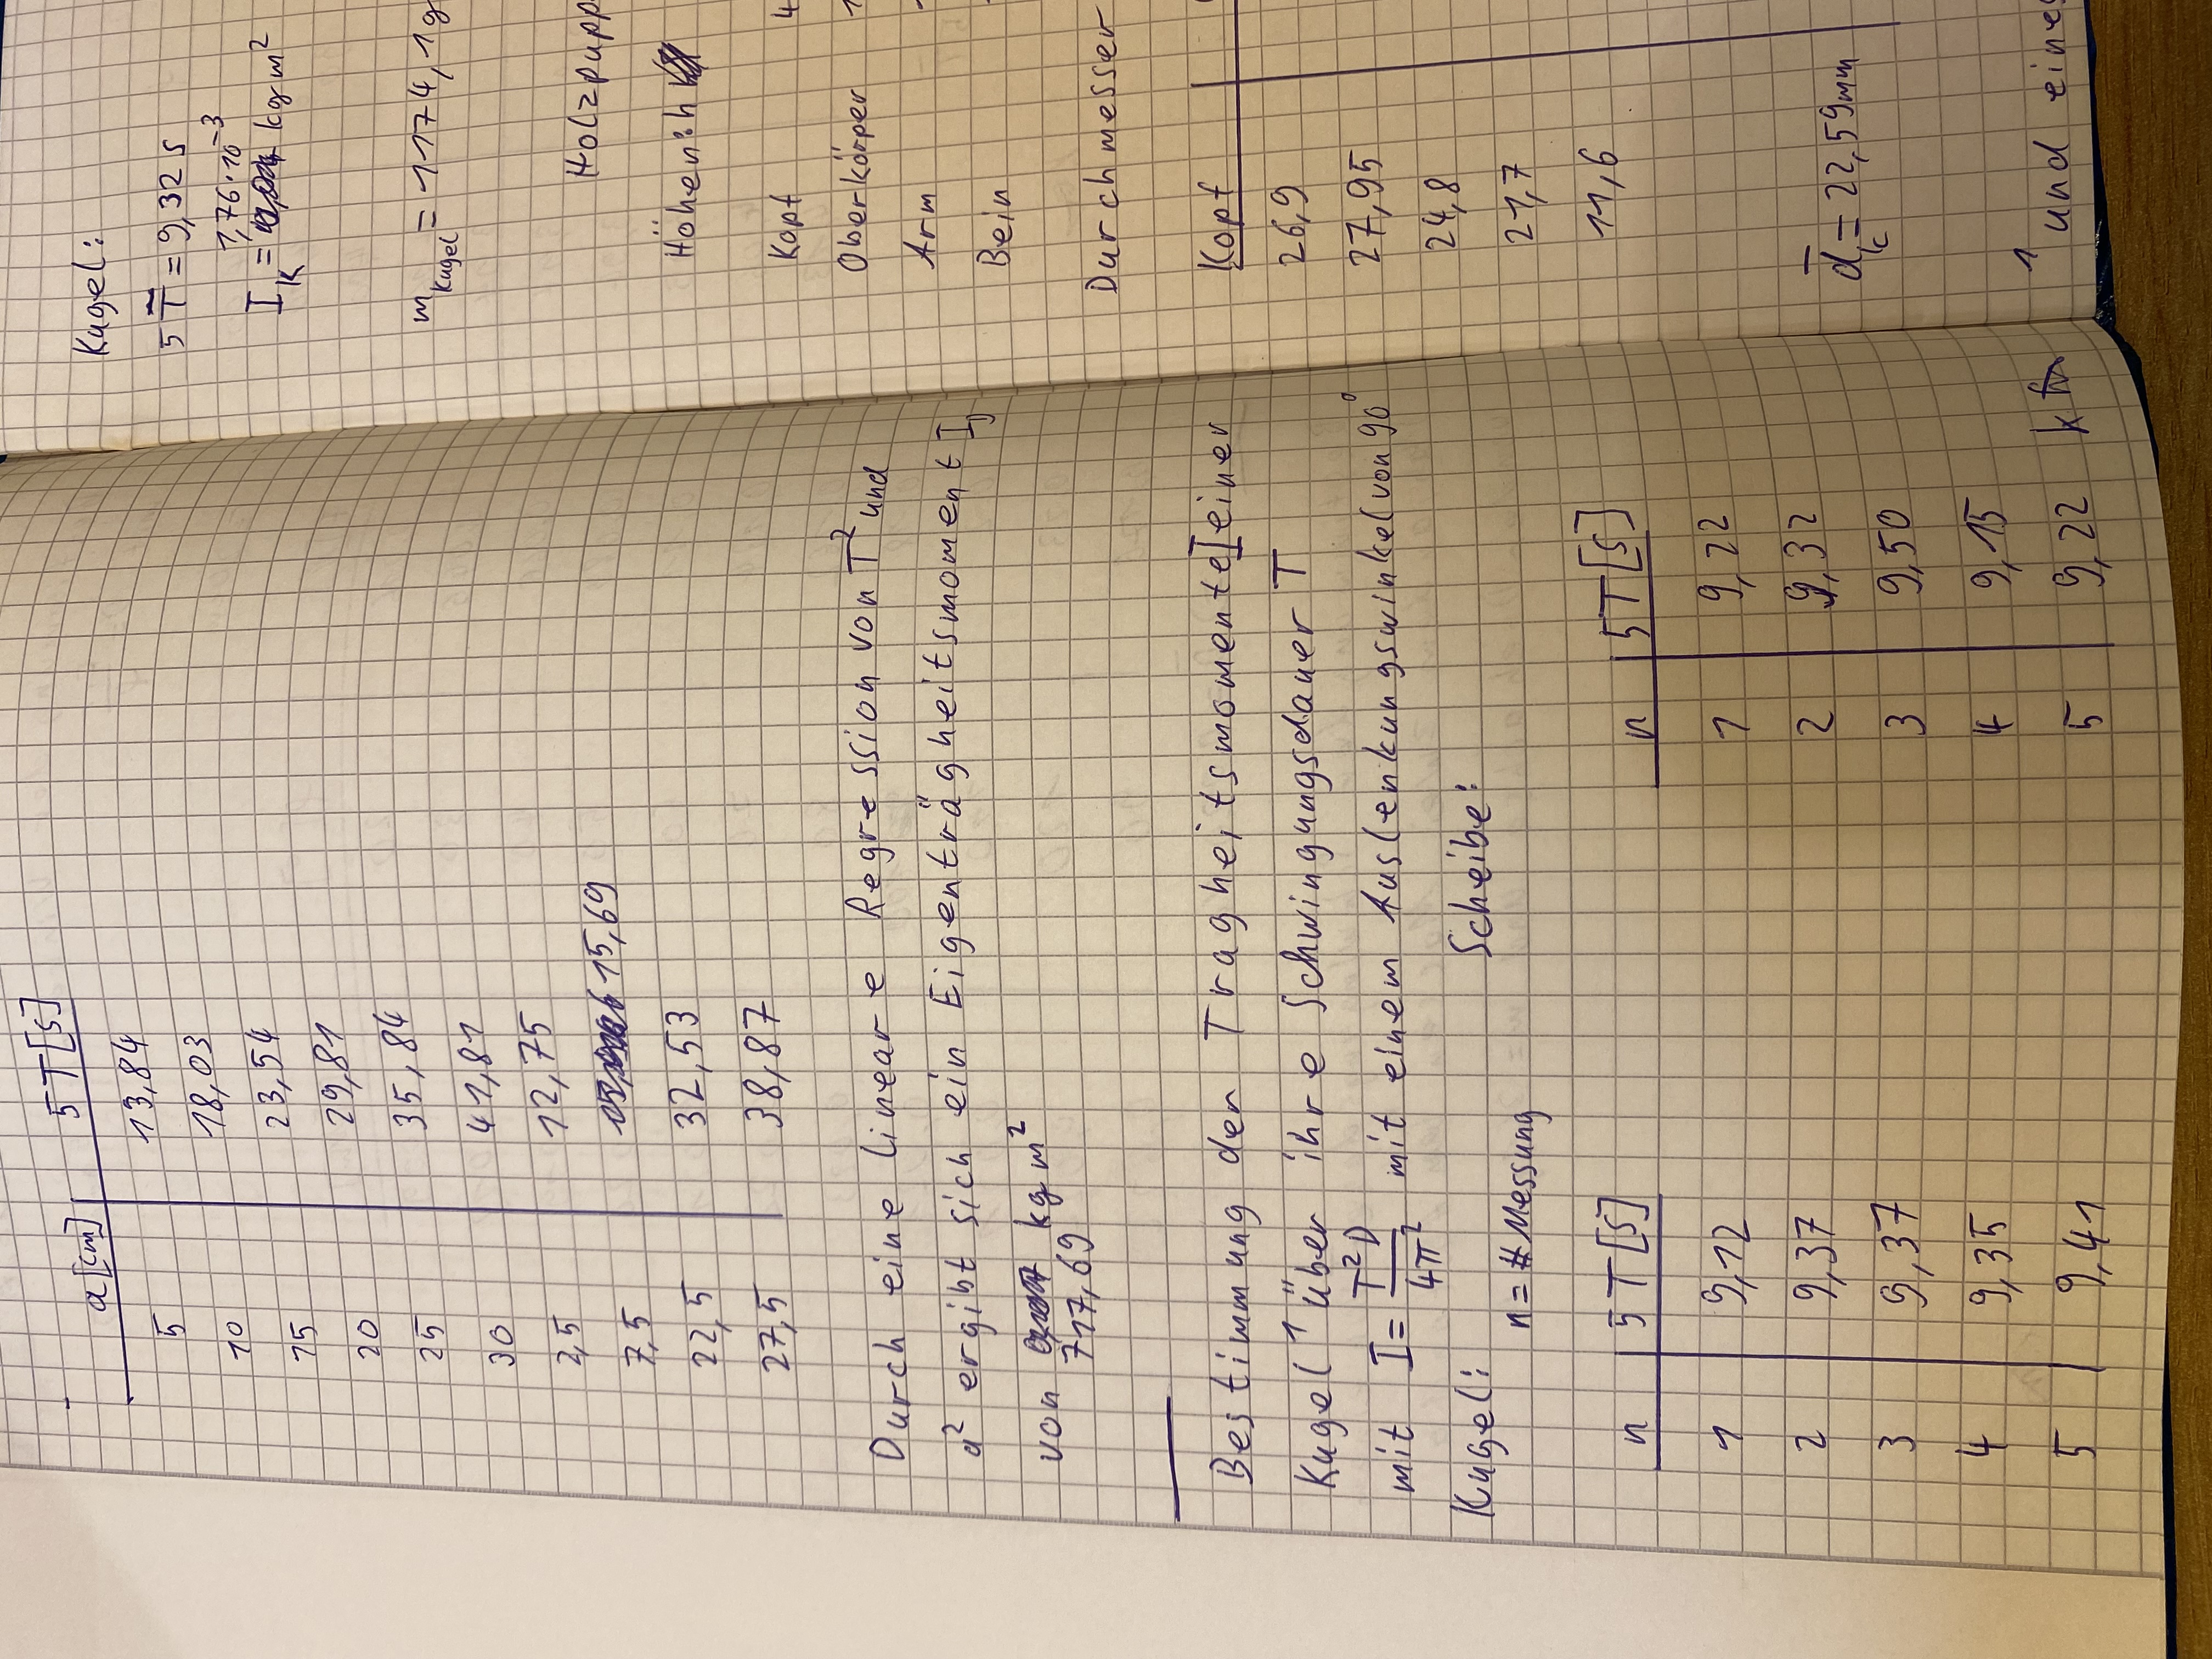 a[cm] 5T[s]
5 13,84
10 18,03
15 23,54
20 29,81
25 35,84
30 41,81
2,5 12,75
7,5 15,69
22,5 32,53
27,5 38,87
Durch eine lineare Regression von T² und
a² ergibt sich ein Eigenträgheitsmoment I_D
von kg m²
717,69
Bestimmung der Tragheitsmomente I einer
Kugel ¹ über ihre Schwingungsdauer T
mit I = T²D / 4π² mit einem Auslenkungswinkel von 90°
Kugel: Scheibe:
n = # Messung
n 5T[s] n 5T[s]
1 9,12 1 9,22
2 9,37 2 9,32
3 9,37 3 9,50
4 9,35 4 9,15
5 9,41 5 9,22
Kugel:
5 T̄ = 9,32 s
1,76·10⁻³
I_K = kg m²
m_Kugel = 1174,1g
Holzpupp
Höhen: h
Kopf 4
Oberkörper 1
Arm
Bein
Durchmesser
Kopf
26,9
27,95
24,8
21,7
11,6
d̄_K = 22,59mm
¹ und eines